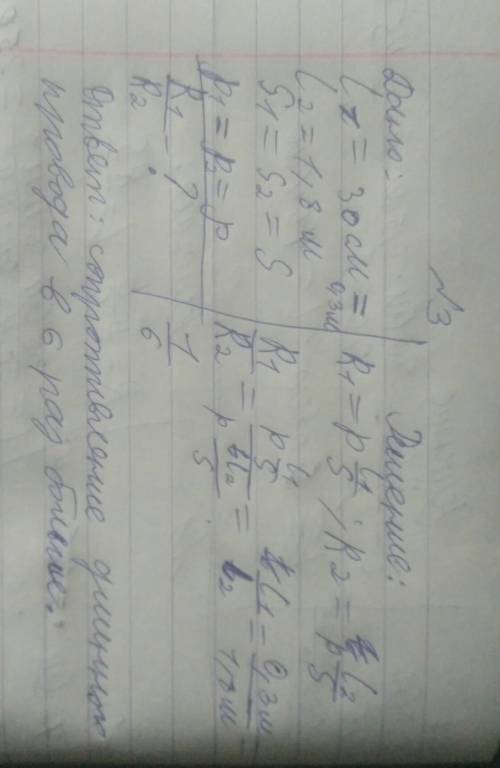 №3
Дано:
l₁ = 30 см = 0,3 м
l₂ = 1,8 м
S₁ = S₂ = S
ρ₁ = ρ₂ = ρ
R₁/R₂ - ?
Решение:
R₁ = ρ l₁/S ; R₂ = ρ l₂/S
R₁/R₂ = (ρ l₁/S)/(ρ l₂/S) = l₁/l₂ = 0,3м/1,8м =
1/6
Ответ: сопротивление длинного
провода в 6 раз больше.